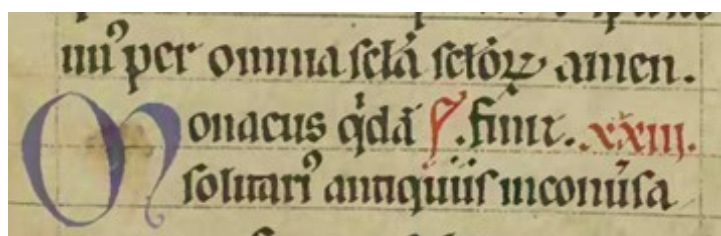 mi⁹ per omnia scła sctoꝝ amen.
Monacus qdā ſ. finit. xxiii.
solitari⁹ antiquiis inconūsa